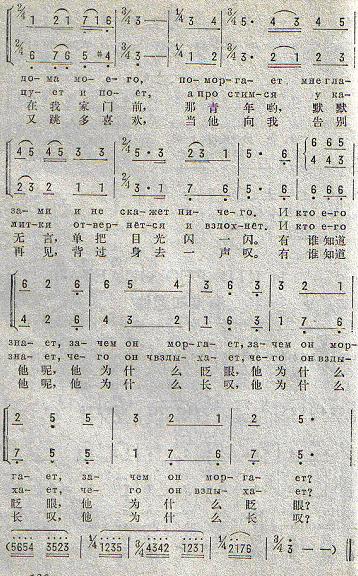 2/4 1 2 1 7 1 6 | 3/4 3 — — | 1 3 4 | 3/4 5· 4 3 4 5
2/4 6 7 6 5 #4 | 3/4 3 — — | 2/4 6 1 2 | 3/4 3· 2 1 2 3
до-ма мо-е-го, по-мор-га-ет мне гла-
пу-ет и по-ёт, а про стим-ся у ка-
在 我 家 门 前, 那 青 年 哟, 默 默
又 跳 多 喜 欢, 当 他 向 我 告 别
4 5 4 5 3 3 | 2/4 5· 3 | 2 3 1 | 5· 6 | 6 6 5
2 3 2 1 1 | 2/4 3· 1 | 7 6 | 5· 6 | 4 4 3
за-ми и не ска-жет ни-че-го. И кто е-го
лит-ки от-вер-нёт-ся и вздох-нёт. И кто е-го
无 言, 单 把 目 光 闪 一 闪。 有 谁 知道
再 见, 背 过 身 去 一 声 叹。 有 谁 知道
6 2 6 | 6 5 | 4 3 2 | 3 6 | 3 2 1
4 2 6 | 6 4 3 | 2 1 6 | 1 3 | 1 7 6
зна-ет, за-чем он мор-га-ет, за-чем он мор-
зна-ет, че-го он чвзды-ха-ет, че-го он взды-
他 呢, 他 为 什 么 眨 眼, 他 为 什 么
他 呢, 他 为 什 么 长 叹, 他 为 什 么
2 5 5 | 3 2 1 | 2 5·
7 5 5 | 1 7 6 | 7 5·
га-ет, за-чем он мор-га-ет?
ха-ет, че-го он взды-ха-ет?
眨 眼, 他 为 什 么 眨 眼?
长 叹, 他 为 什 么 长 叹?
(5654 3523 | 1/4 1235 | 3/4 4342 1231 | 1/4 2176 | 3/4 3 — —)